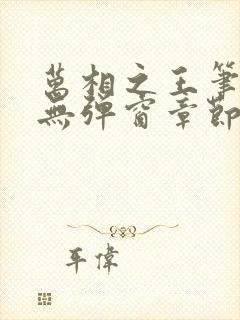 萬相之王筆
無彈窗章節
平偉